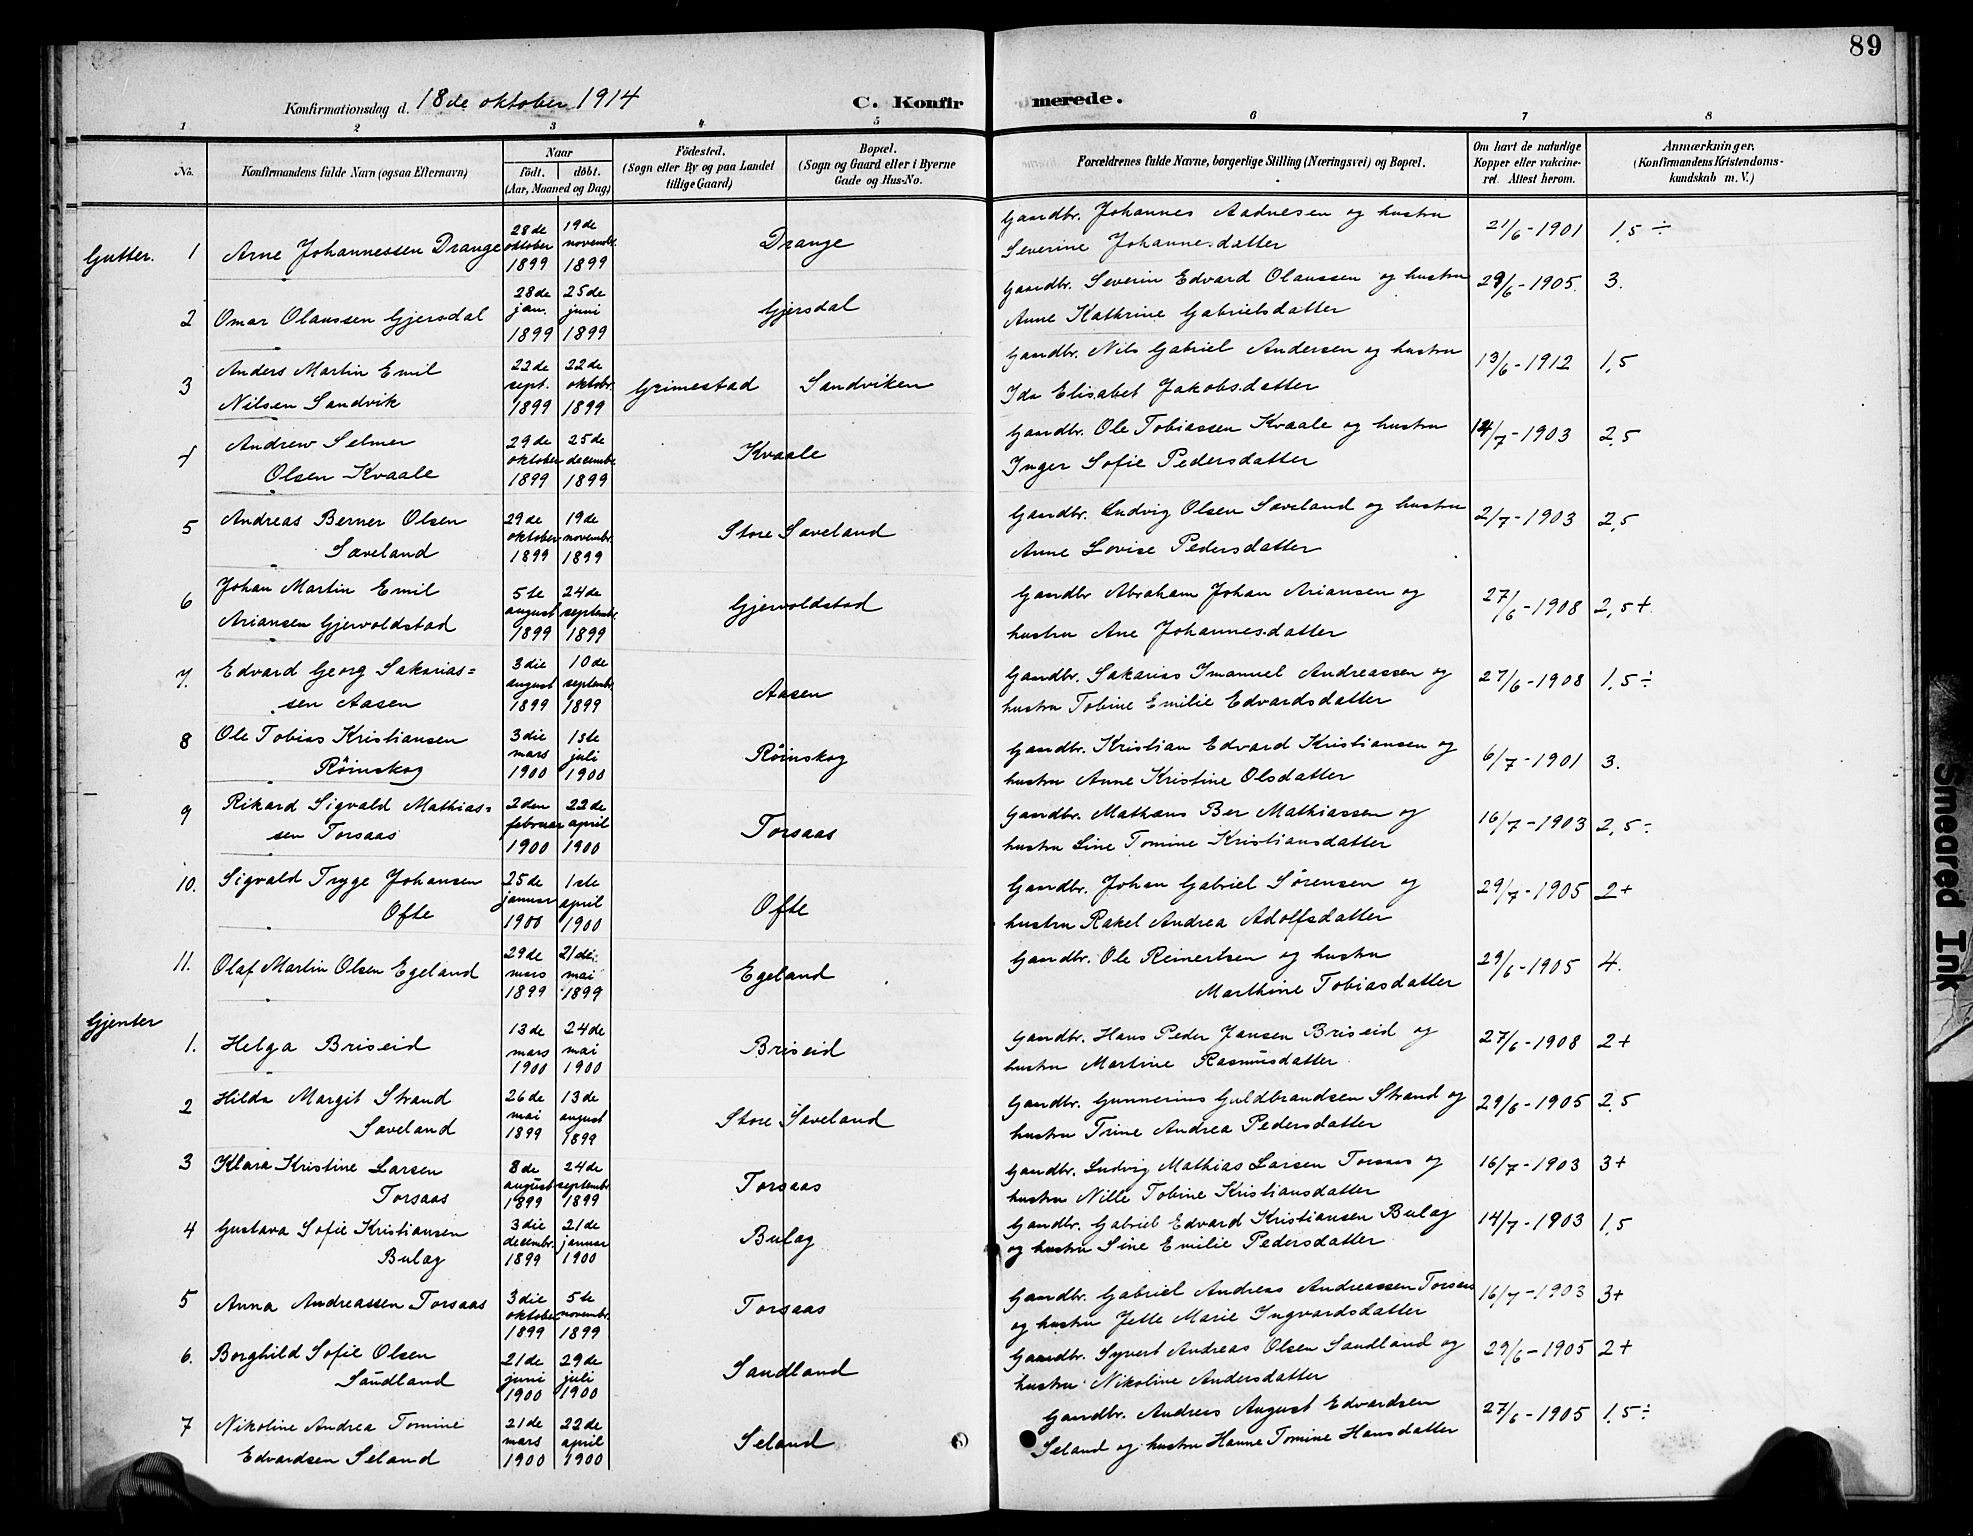 89
Konfirmationsdag d. 18de oktober 1914
C. Konfirmerede.
1 2 3 4 5 6 7 8
No.
Konfirmandens fulde Navn (ogsaa Efternavn)
Naar
født. døbt.
(Aar, Maaned og Dag)
Fødested.
(Sogn eller By og paa Landet
tillige Gaard)
Bopæl.
(Sogn og Gaard eller i Byerne
Gade og Hus-No.
Forældrenes fulde Navne, borgerlige Stilling (Næringsvei) og Bopæl.
Om havt de naturlige
Kopper eller vakcine-
ret. Attest herom.
Anmærkninger.
(Konfirmandens Kristendoms-
kundskab m. V.)
Gutter.
1 Arne Johannessen Drange
28de oktober 1899 19de novembr. 1899
Drange
Gaardbr. Johannes Aadnesen og hustru
Severine Johannesdatter
21/6-1901 1,5 ÷
2 Omar Olaussen Gjersdal
28de jan. 1899 25de juni 1899
Gjersdal
Gaardbr. Severin Edvard Olaussen og hustru
Anne Kathrine Gabrielsdatter
29/6-1905. 3.
3 Anders Martin Emil
Nilsen Sandvik
22de sept. 1899 22de oktobr. 1899
Grimestad Sandviken
Gaardbr. Nils Gabriel Andersen og hustru
Ida Elisabet Jakobsdatter
13/6-1912 1,5
4 Andrew Selmer
Olsen Kvaale
29de oktober 1899 25de decembr. 1899
Kvaale
Gaardbr. Ole Tobiassen Kvaale og hustru
Inger Sofie Pedersdatter
14/7-1903 2,5
5 Andreas Berner Olsen
Saveland
29de oktober 1899 19de novembr. 1899
Store Saveland
Gaardbr. Ludvig Olsen Saveland og hustru
Anne Lovise Pedersdatter
2/7-1903 2,5
6 Johan Martin Emil
Ariansen Gjervoldstad
5te august 1899 24de septembr. 1899
Gjervoldstad
Gaardbr Abraham Johan Ariansen og
hustru Ane Johannesdatter
27/6-1908 2,5+
7. Edvard Georg Sakarias=
sen Aasen
3die august 1899 10de septembr. 1899
Aasen
Gaardbr. Sakarias Imanuel Andreassen og
hustru Tobine Emilie Edvardsdatter
27/6-1908 1,5÷
8 Ole Tobias Kristiansen
Röinskog
3die mars 1900 1ste juli 1900
Röinskog
Gaardbr. Kristian Edvard Kristiansen og
hustru Anne Kristine Olsdatter
6/7-1901 3.
9 Rikard Sigvald Mathias=
sen Torsaas
2den februar 1900 22de april 1900
Torsaas
Gaardbr. Mathæus Ber Mathiassen og
hustru Line Tomine Kristiansdatter
16/7-1903 2,5÷
10. Sigvald Tryge Johansen
Ofte
25de januar 1900 1ste april 1900
Ofte
Gaardbr. Johan Gabriel Sørensen og
hustru Rakel Andrea Adolfsdatter
29/7-1905 2+
11. Olaf Martin Olsen Egeland
29de mars 1899 21de mai 1899
Egeland
Gaardbr. Ole Reinertsen og hustru
Marthine Tobiasdatter
29/6-1905 4.
Gjenter
1. Helga Briseid
13de mars 1900 24de mai 1900
Briseid
Gaardbr. Hans Peder Jansen Briseid og
hustru Martine Rasmusdatter
27/6-1908 2+
2 Hilda Margit Strand
Saveland
26de mai 1899 13de august 1899
Store Saveland
Gaardbr. Gunnerius Guldbrandsen Strand og
hustru Trine Andrea Pedersdatter
29/6-1905 2,5
3 Klara Kristine Larsen
Torsaas
8de august 1899 24de septembr 1899
Torsaas
Gaardbr. Ludvig Mathias Larsen Torsaas og
hustru Nille Tobine Kristiansdatter
16/7-1903 3+
4 Gustava Sofie Kristiansen
Bulag
3die decembr. 1899 21de januar 1900
Bulag
Gaardbr. Gabriel Edvard Kristiansen Bulag
og hustru Sine Emilie Pedersdatter
14/7-1903 1,5
5 Anna Andreassen Torsaas
3die oktober 1899 5te novembr. 1899
Torsaas
Gaardbr. Gabriel Andreas Andreassen Torsaas
og hustru Jette Marie Ingvardsdatter
16/7-1903 3+
6. Borghild Sofie Olsen
Saudland
21de juni 1900 29de juli 1900
Saudland
Gaardbr. Syvert Andreas Olsen Saudland og
hustru Nikoline Andersdatter
29/6-1905 2+
7 Nikoline Andrea Tomine
Edvardsen Seland
21de mars 1900 22de april 1900
Seland
Gaardbr. Andreas August Edvardsen
Seland og hustru Hanne Tomine Hansdatter
27/6-1905 1,5÷
Smeared Ink